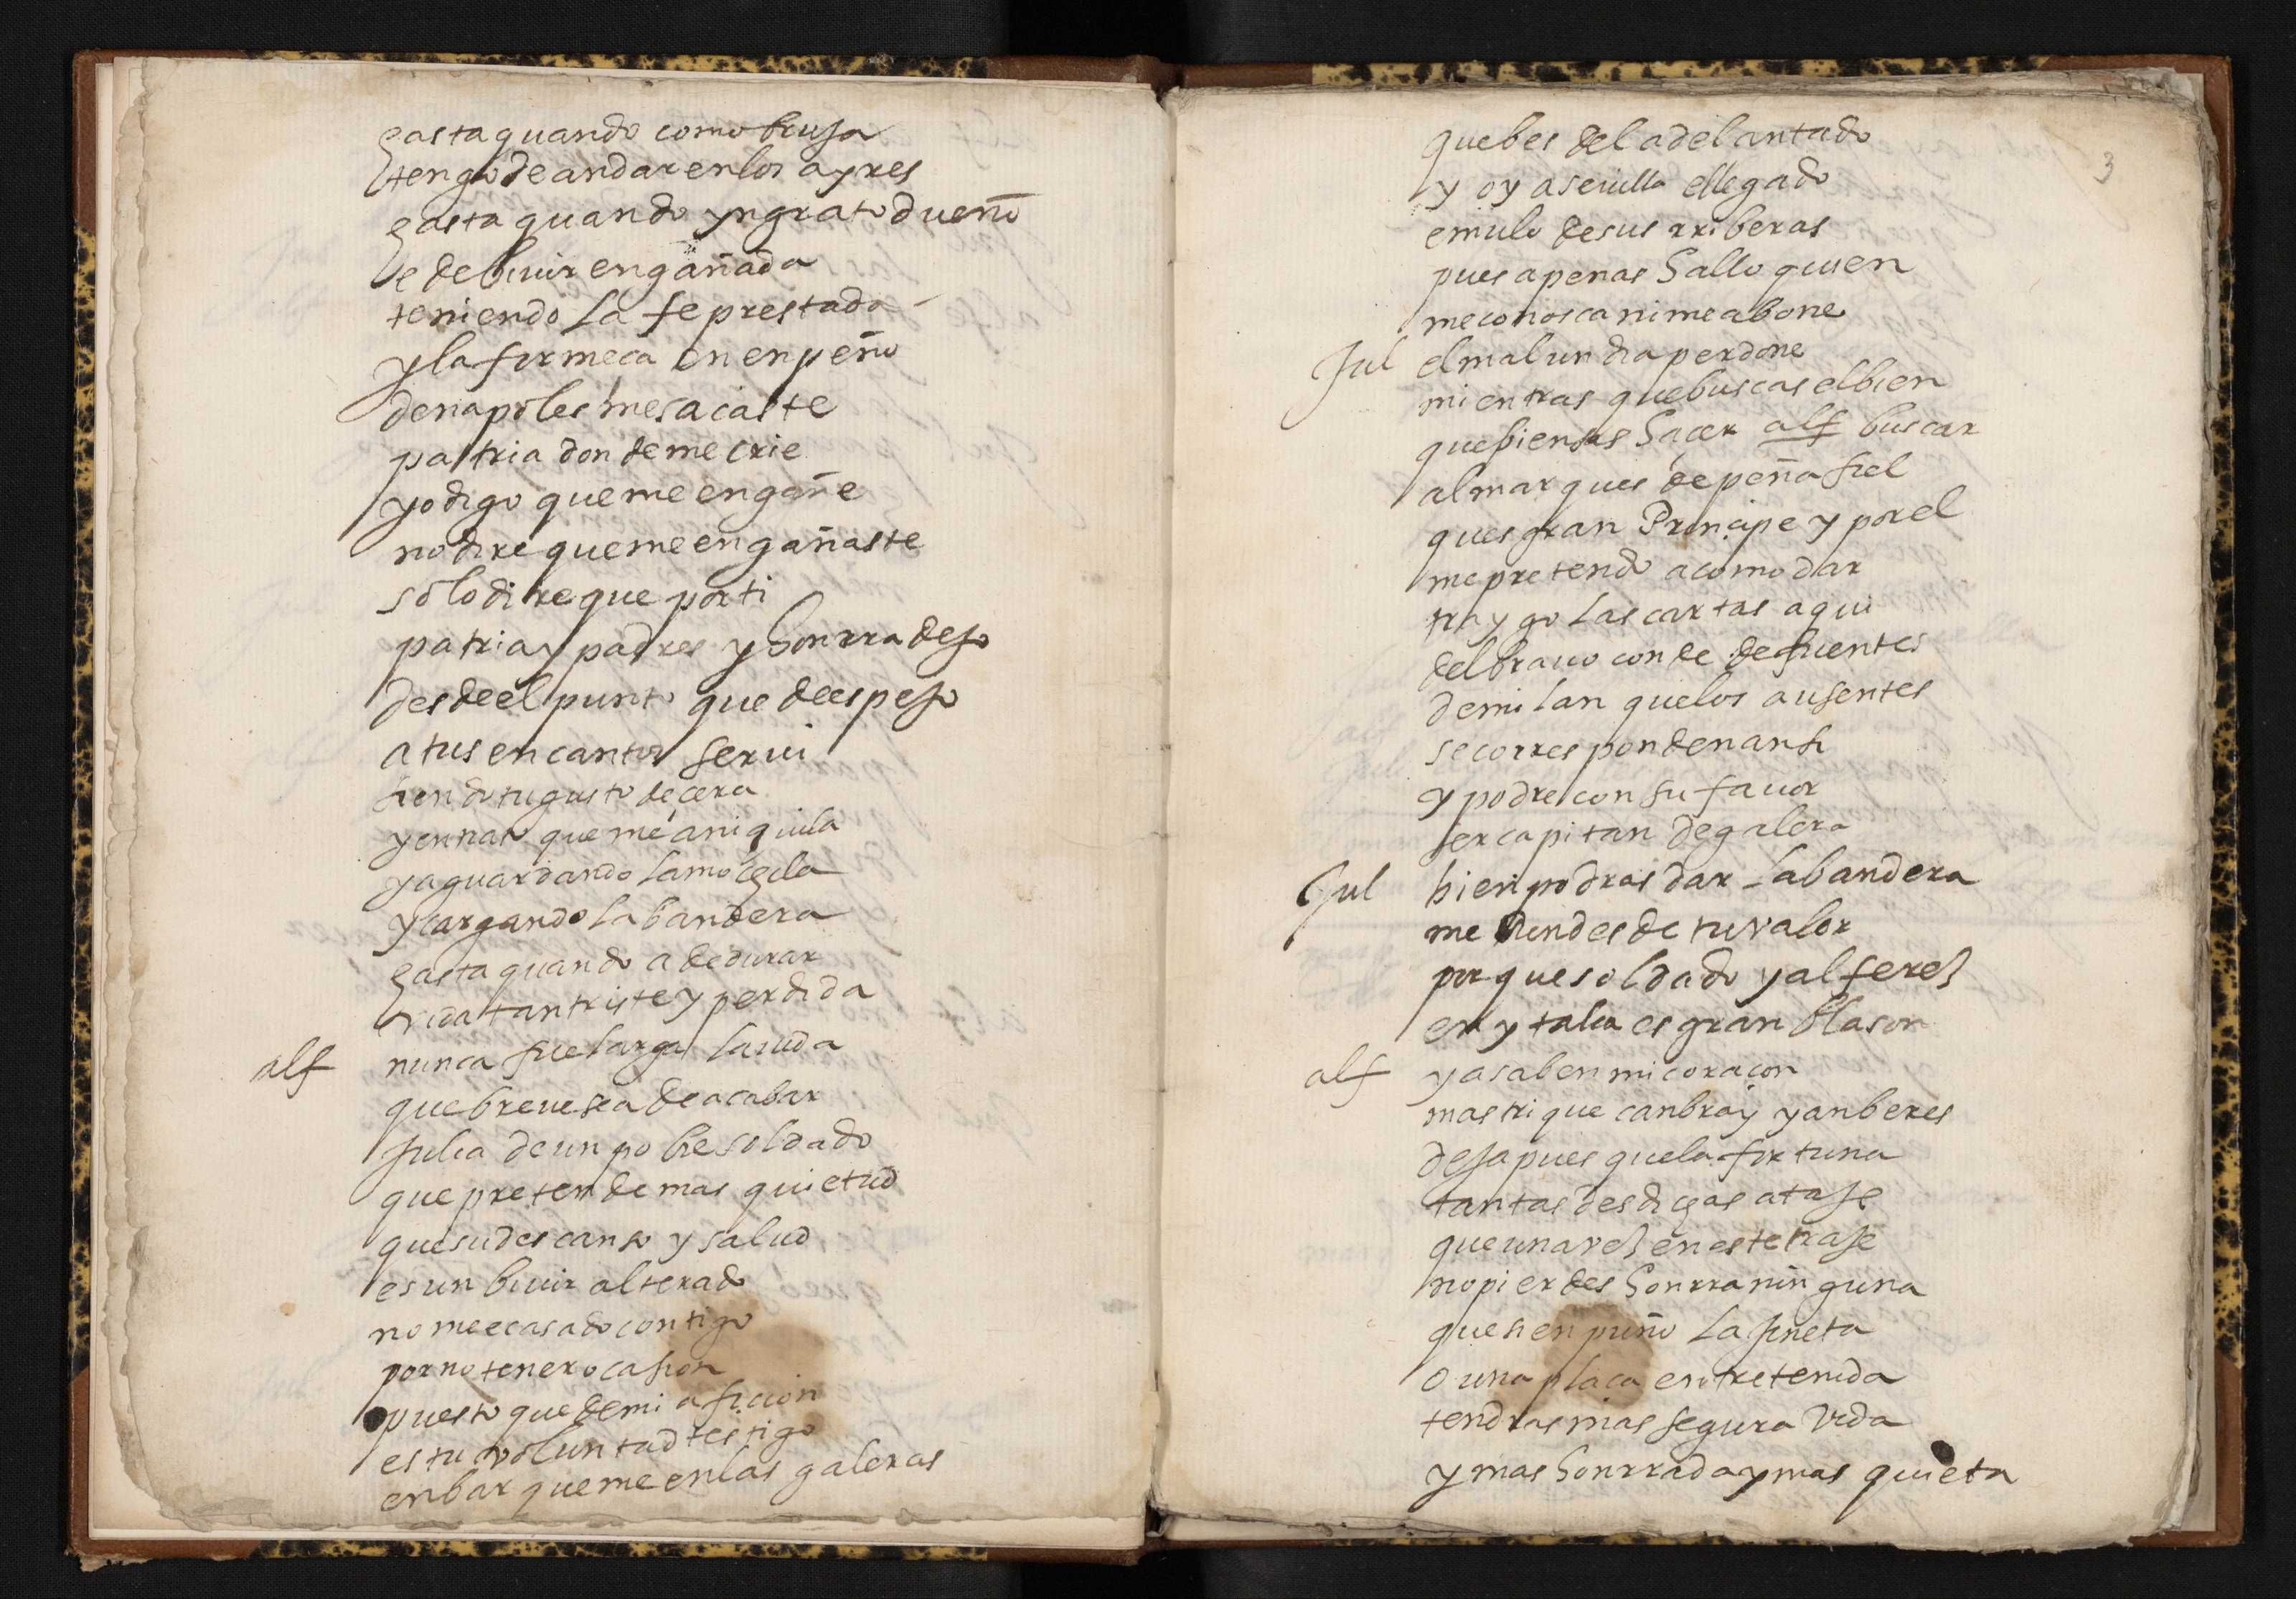 hasta quando como bruja
tengo de andar en los ayres
hasta quando yngrato dueño
e de biuir engañada
teniendo la fe prestada
y la firmeça en enpeño
de napoles me sacaste
patria donde me crie
yo digo que me engañe
no dire que me engañaste
solo dire que por ti
patria y padres y honrra dejo
desde el punto que de espejo
a tus encantos serui
siendo tu gusto de cera
y en mar que me aniquila
y aguardando la mochila
y cargando la bandera
hasta quando a de durar
vida tan triste y perdida
alf nunca fue larga la uida
que breue sea de acabar
Julia de un pobre soldado
que pretende mas quietud
que su descanso y salud
es un biuir alterado
no me e casado contigo
por no tener ocasion
puesto que de mi aficion
es tu voluntad testigo
enbarqueme en las galeras
3
que bes del adelantado
y oy a seuilla e llegado
emulo de sus rriberas
pues apenas hallo quien
me conosca ni me abone
Jul el mal un dia perdone
mientras que buscas el bien
que piensas hacer alf buscar
al marques de peñafiel
ques gran Principe y por el
me pretendo acomodar
traygo las cartas aqui
del brauo conde de fuentes
de milan que los ausentes
se corresponden ansi
y podre con su fauor
ser capitan de galera
Jul bien podras dar la bandera
me dendes de tu valor
porque soldado y alferez
en ytalia es gran blason
alf ya saben mi coraçon
mastrique canbray y anberes
deja pues que la fortuna
tantas desdichas ataje
que una vez en este traje
no pierdes honrra ninguna
que si enpuño la jineta
o una plaça entretenida
tendras mas segura vida
y mas honrrada y mas quieta